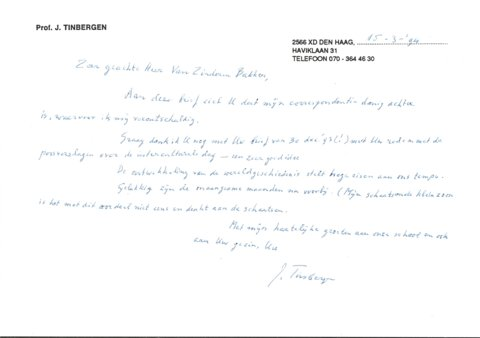 Prof. J. TINBERGEN
2566 XD DEN HAAG, 15-3-'94
HAVIKLAAN 31
TELEFOON 070 - 364 46 30
Zeer geachte Heer Van Zinderen Bakker,
Aan deze brief ziet U dat mijn correspondentie danig achter
is, waarvoor ik mij verontschuldig.
Graag dank ik U nog met Uw brief van 30 dec met Uw rede en met de
persverslagen over de interculturele dag — een zeer goed idee
De ontwikkeling van de wereldgeschiedenis stelt hoge eisen aan ons tempo.
Gelukkig zijn de maanden nu voorbij. (Mijn schaatsende kleinzoon
is het met dit oordeel niet eens en denkt aan de schaatsen.
Met mijn hartelijke groeten aan onze school en ook
aan Uw gezin, Uw
J. Tinbergen